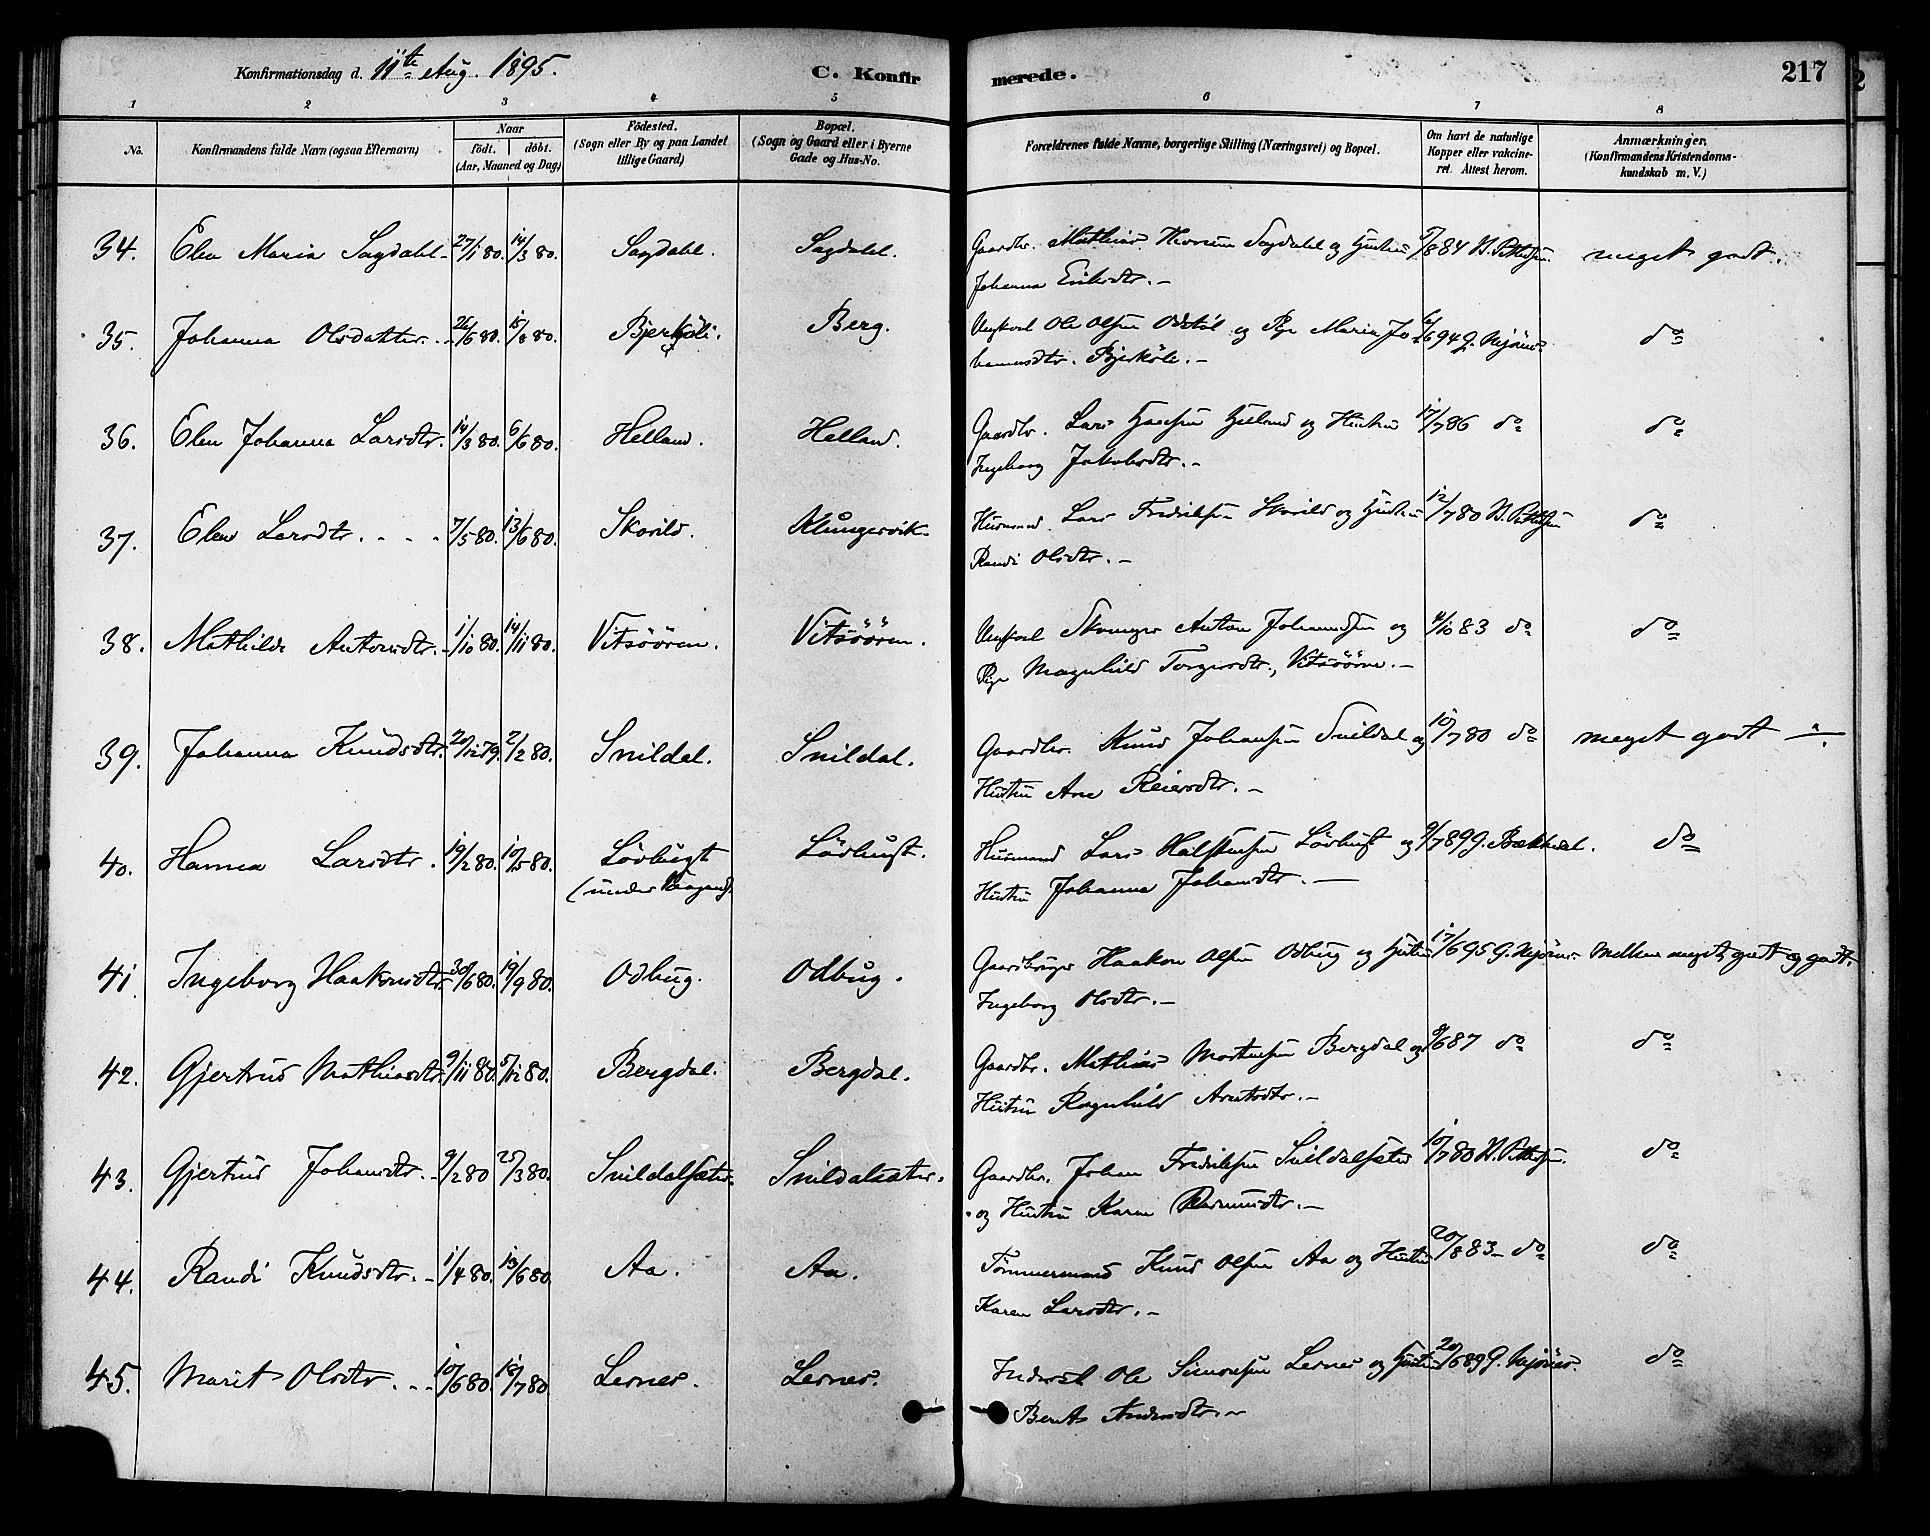 Konfirmationsdag d. 11te Aug. 1895. C. Konfir merede. 217
1 2 3 4 5 6 7 8
No. Konfirmandens fulde Navn (ogsaa Efternavn) Naar født. døbt. (Aar, Maaned og Dag) Fødested. (Sogn eller By og paa Landet tillige Gaard) Bopæl. (Sogn og Gaard eller i Byerne Gade og Hus-No. Forældrenes fulde Navne, borgerlige Stilling (Næringsvei) og Bopæl. Om havt de naturlige Kopper eller vakcineret. Attest herom. Anmærkninger. (Konfirmandens Kristendomskundskab m. V.)
34. Elen Maria Sagdahl. 27/1 80. 14/3 80. Sagdahl. Sagdahl. Gaardbr. Mathias Sagdahl og Hustru 84 N. Pettersen meget godt.
Johanna Eriksdtr. —
35. Johanna Olsdatter. 26/6 80. 15/8 80. Bjerkøli. Berg. Ungkarl Ole Olsen og Pige Maria Jo- 94 do
hannesdtr. Bjerkøli. —
36. Elen Johanna Larsdtr. 14/3 80. 6/6 80. Helland. Helland. Gaardbr. Lars Helland og Hustru 17/7 86 do do
Ingeborg Jakobsdtr. —
37. Elen Larsdtr. 7/5 80. 13/6 80. Skorild. Klungervik. Husmand. Lars Fredriksen Skorild og Hustru 12/7 80 N. Pettersen do
Randi Olsdtr. —
38. Mathilde Antonsdtr. 1/10 80. 14/11 80. Vitsöören. Vitsöören. Ungkarl Anton Johannesen og 4/10 83 do do
Pige Magnhild Torgersdtr., Vitsöören. —
39. Johanna Knudsdtr. 20/12 79. 2/2 80. Snildal. Snildal. Gaardbr. Knud Johansen Snildal og 10/7 80 do meget godt ÷
Hustru Ane Reiersdtr. —
40. Hanna Larsdtr. 19/2 80. 10/5 80. Lövbugt Lövbugt. Husmand Lars Halstensen Lövbugt og 9/7 89 do
(under ) Hustru Johanna Johansdtr. —
41. Ingeborg Haakonsdtr. 30/6 80. 19/9 80. Odbug. Odbug. Gaardbruger Haakon Olsen Odbug og Hustru 17/6 95 Mellem meget godt og godt.
Ingeborg Olsdtr. —
42. Gjertrud Mathiasdtr. 9/11 80. 5/12 80. Bergdal. Bergdal. Gaardbr. Mathias Mortensen Bergdal og 87 do do
Hustru Ragnhild Arntsdtr. —
43. Gjertrud Johansdtr. 9/2 80 25/3 80. Snildalsæter. Snildalsæter. Gaardbr. Johan Fredriksen Snildalsæter 10/7 80 N. Pettersen. do
og Hustru Karen Rasmusdtr. —
44. Randi Knudsdtr. 1/4 80. 13/6 80. Aa. Aa. Tömmermand Knud Olsen Aa og Hustru 20/8 83 do do
Karen Larsdtr. —
45. Marit Olsdtr. 10/6 80. 18/7 80 Lernes. Lernes. Inderst Ole Simonsen Lernes og Hustru 20/6 89 do
Berit Andersdtr. —